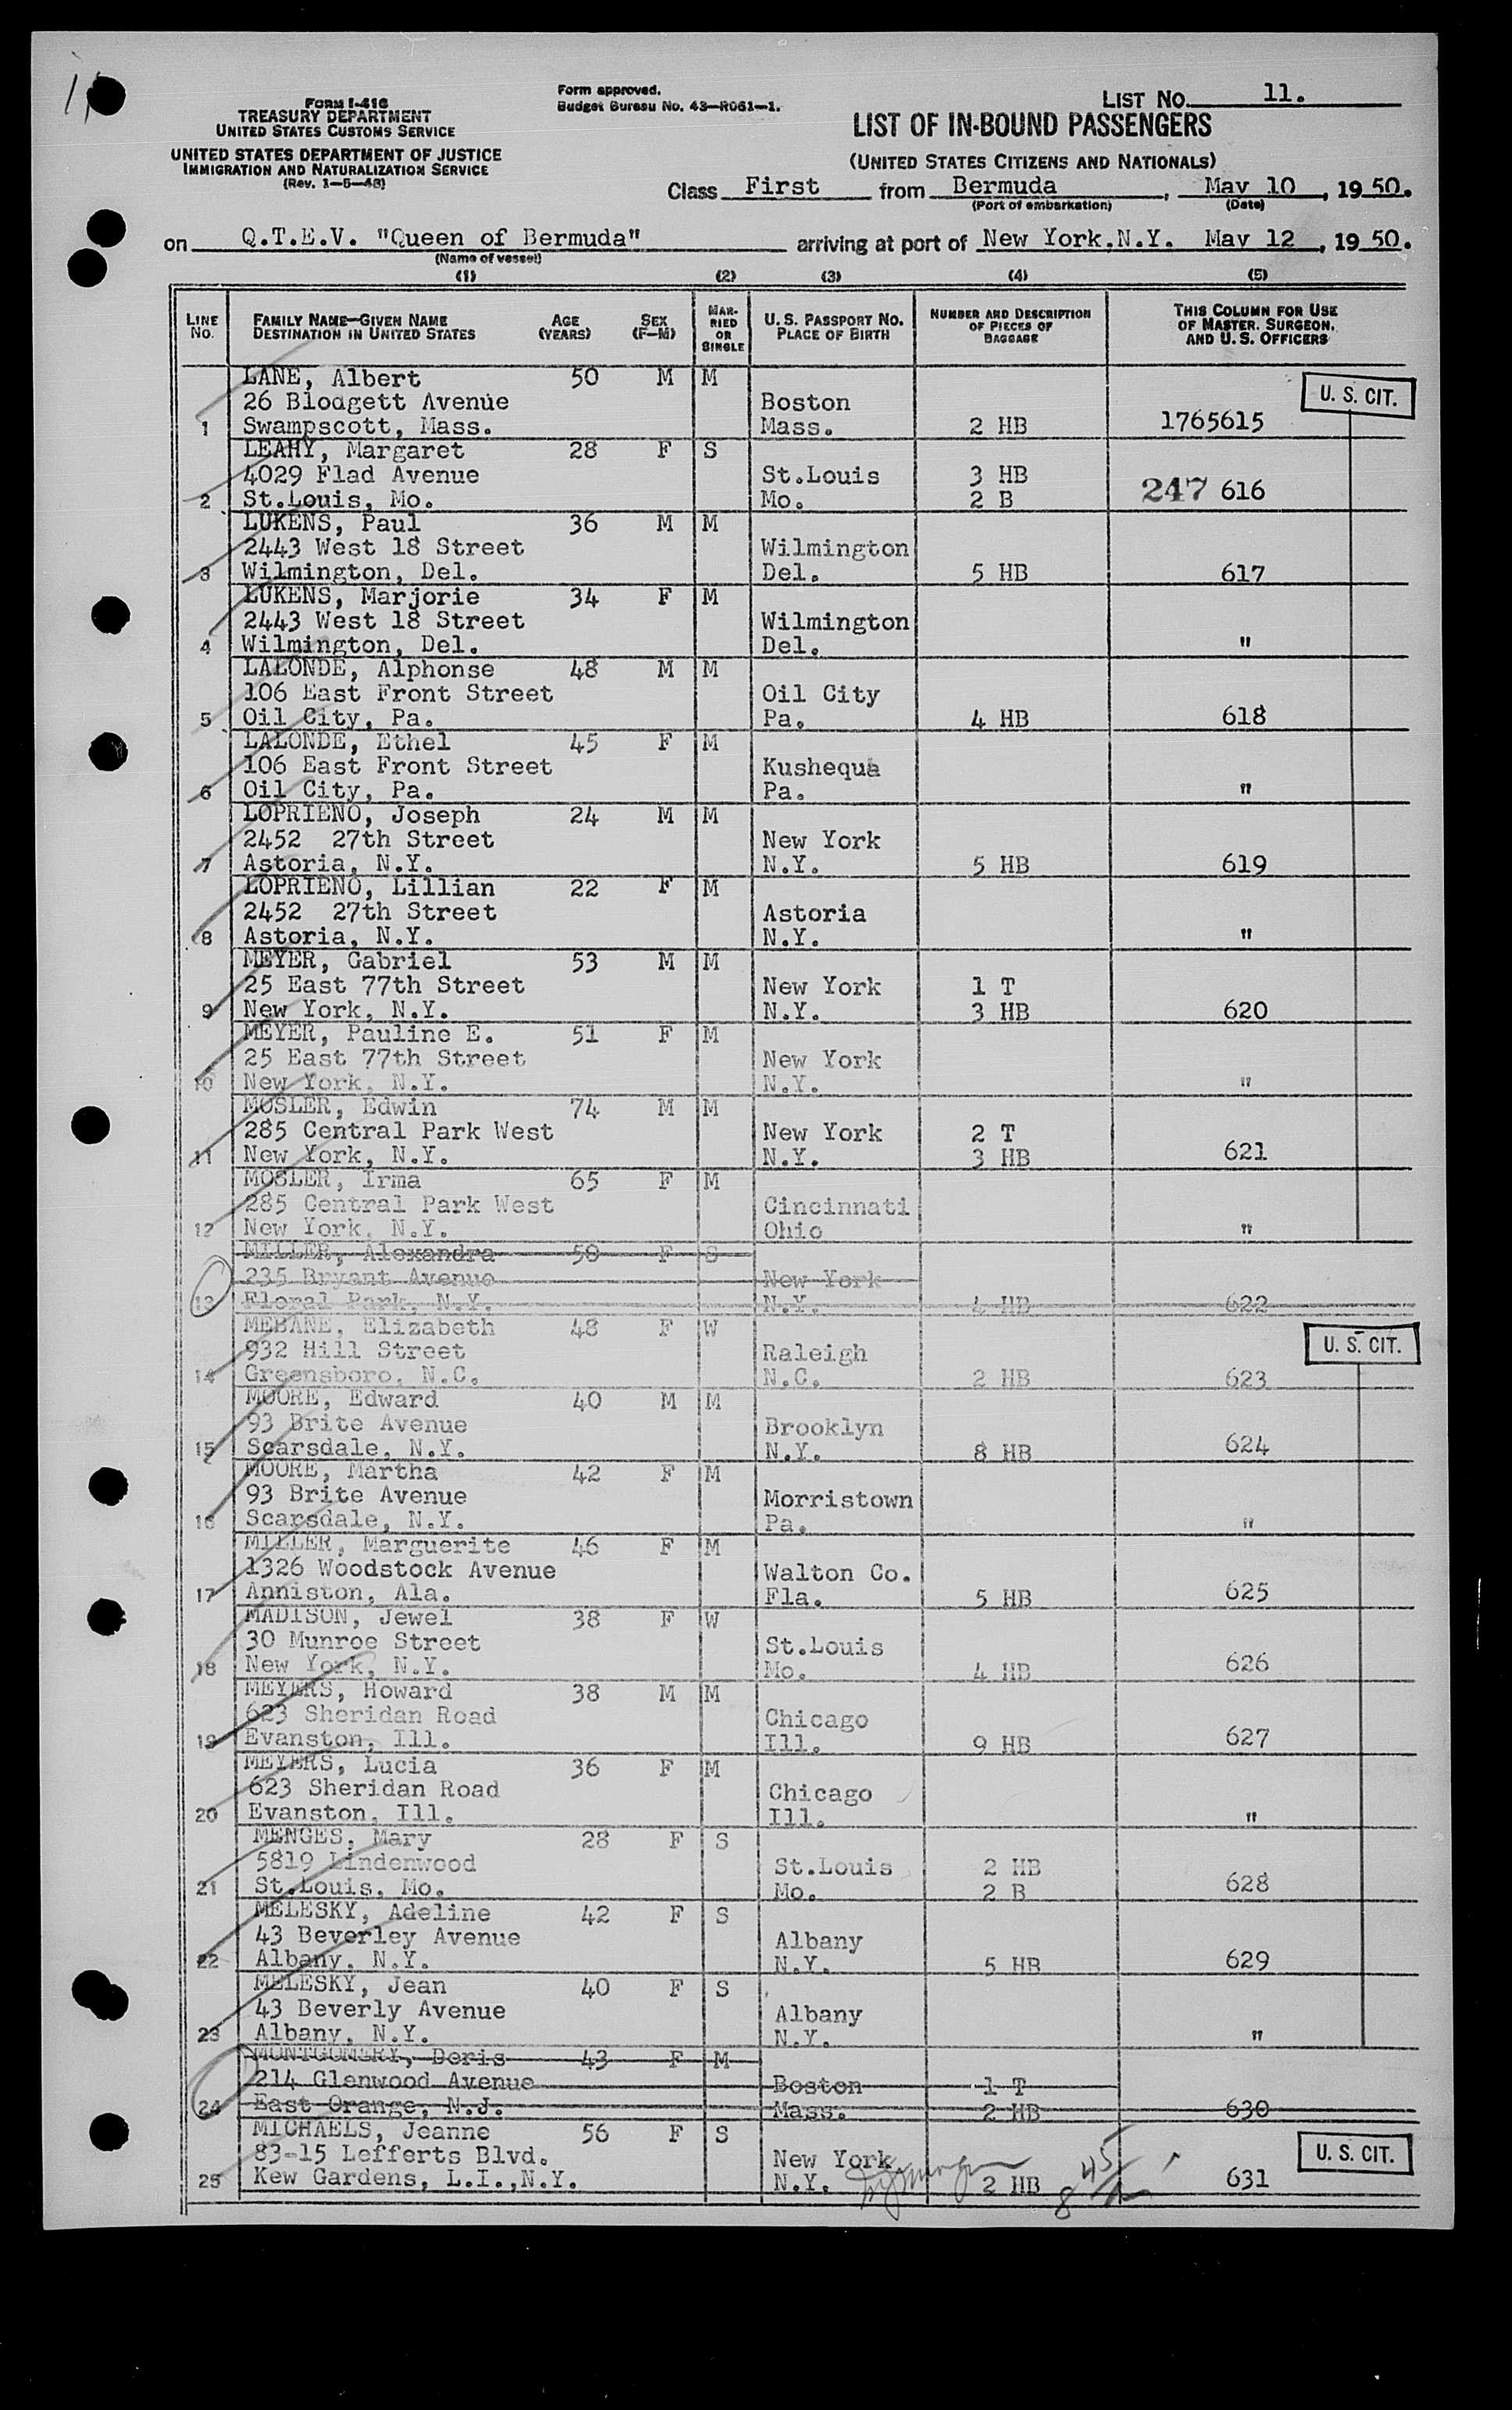 11
FORM I-416
TREASURY DEPARTMENT
UNITED STATES CUSTOMS SERVICE
UNITED STATES DEPARTMENT OF JUSTICE
IMMIGRATION AND NATURALIZATION SERVICE
(Rev. 1-5-48)
Form approved.
Budget Bureau No. 43-R061-1.
LIST NO. 11.
LIST OF IN-BOUND PASSENGERS
(UNITED STATES CITIZENS AND NATIONALS)
Class First from Bermuda, May 10, 1950.
(Port of embarkation) (Date)
on Q.T.E.V. "Queen of Bermuda" arriving at port of New York,N.Y. May 12, 1950.
(Name of vessel)
(1) (2) (3) (4) (5)
LINE NO. FAMILY NAME—GIVEN NAME DESTINATION IN UNITED STATES AGE (YEARS) SEX (F-M) MARRIED OR SINGLE U. S. PASSPORT NO. PLACE OF BIRTH NUMBER AND DESCRIPTION OF PIECES OF BAGGAGE THIS COLUMN FOR USE OF MASTER, SURGEON, AND U. S. OFFICERS
LANE, Albert 50 M M
U. S. CIT.
26 Blodgett Avenue Boston
1 Swampscott, Mass. Mass. 2 HB 1765615
LEAHY, Margaret 28 F S
4029 Flad Avenue St.Louis 3 HB
2 St.Louis, Mo. Mo. 2 B 247 616
LUKENS, Paul 36 M M
2443 West 18 Street Wilmington
3 Wilmington, Del. Del. 5 HB 617
LUKENS, Marjorie 34 F M
2443 West 18 Street Wilmington
4 Wilmington, Del. Del. "
LALONDE, Alphonse 48 M M
106 East Front Street Oil City
5 Oil City, Pa. Pa. 4 HB 618
LALONDE, Ethel 45 F M
106 East Front Street Kushequa
6 Oil City, Pa. Pa. "
LOPRIENO, Joseph 24 M M
2452 27th Street New York
7 Astoria, N.Y. N.Y. 5 HB 619
LOPRIENO, Lillian 22 F M
2452 27th Street Astoria
8 Astoria, N.Y. N.Y. "
MEYER, Gabriel 53 M M
25 East 77th Street New York 1 T
9 New York, N.Y. N.Y. 3 HB 620
MEYER, Pauline E. 51 F M
25 East 77th Street New York
10 New York, N.Y. N.Y. "
MOSLER, Edwin 74 M M
285 Central Park West New York 2 T
11 New York, N.Y. N.Y. 3 HB 621
MOSLER, Irma 65 F M
285 Central Park West Cincinnati
12 New York, N.Y. Ohio "
MILLER, Alexandra 50 F S
235 Bryant Avenue New York
13 Floral Park, N.Y. N.Y. 4 HB 622
MEBANE, Elizabeth 48 F W
U. S. CIT.
932 Hill Street Raleigh
14 Greensboro, N.C. N.C. 2 HB 623
MOORE, Edward 40 M M
93 Brite Avenue Brooklyn
15 Scarsdale, N.Y. N.Y. 8 HB 624
MOORE, Martha 42 F M
93 Brite Avenue Morristown
16 Scarsdale, N.Y. Pa. "
MILLER, Marguerite 46 F M
1326 Woodstock Avenue Walton Co.
17 Anniston, Ala. Fla. 5 HB 625
MADISON, Jewel 38 F W
30 Munroe Street St.Louis
18 New York, N.Y. Mo. 4 HB 626
MEYERS, Howard 38 M M
623 Sheridan Road Chicago
19 Evanston, Ill. Ill. 9 HB 627
MEYERS, Lucia 36 F M
623 Sheridan Road Chicago
20 Evanston, Ill. Ill. "
MENGES, Mary 28 F S
5819 Lindenwood St.Louis 2 HB
21 St.Louis, Mo. Mo. 2 B 628
MELESKY, Adeline 42 F S
43 Beverley Avenue Albany
22 Albany, N.Y. N.Y. 5 HB 629
MELESKY, Jean 40 F S
43 Beverly Avenue Albany
23 Albany, N.Y. N.Y. "
MONTGOMERY, Doris 43 F M
214 Glenwood Avenue Boston 1 T
24 East Orange, N.J. Mass. 2 HB 630
MICHAELS, Jeanne 56 F S
U. S. CIT.
83-15 Lefferts Blvd. New York
25 Kew Gardens, L.I.,N.Y. N.Y. 2 HB 631